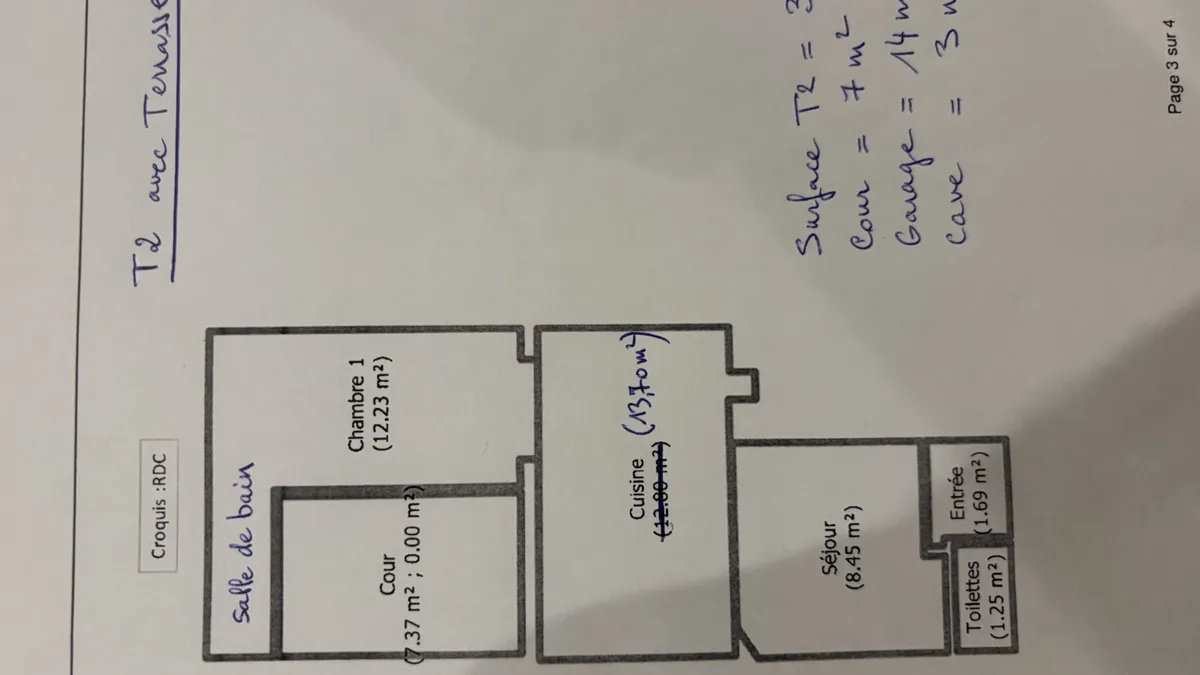 T2 avec Terrasse
Croquis :RDC
Salle de bain
Chambre 1
(12.23 m²)
Cour
(7.37 m² ; 0.00 m²)
Cuisine (13,70 m²)
(12.00 m²)
Séjour
(8.45 m²)
Entrée
(1.69 m²)
Toilettes
(1.25 m²)
Surface T2 = 3
Cour = 7 m²
Garage = 14 m
Cave = 3 m
Page 3 sur 4